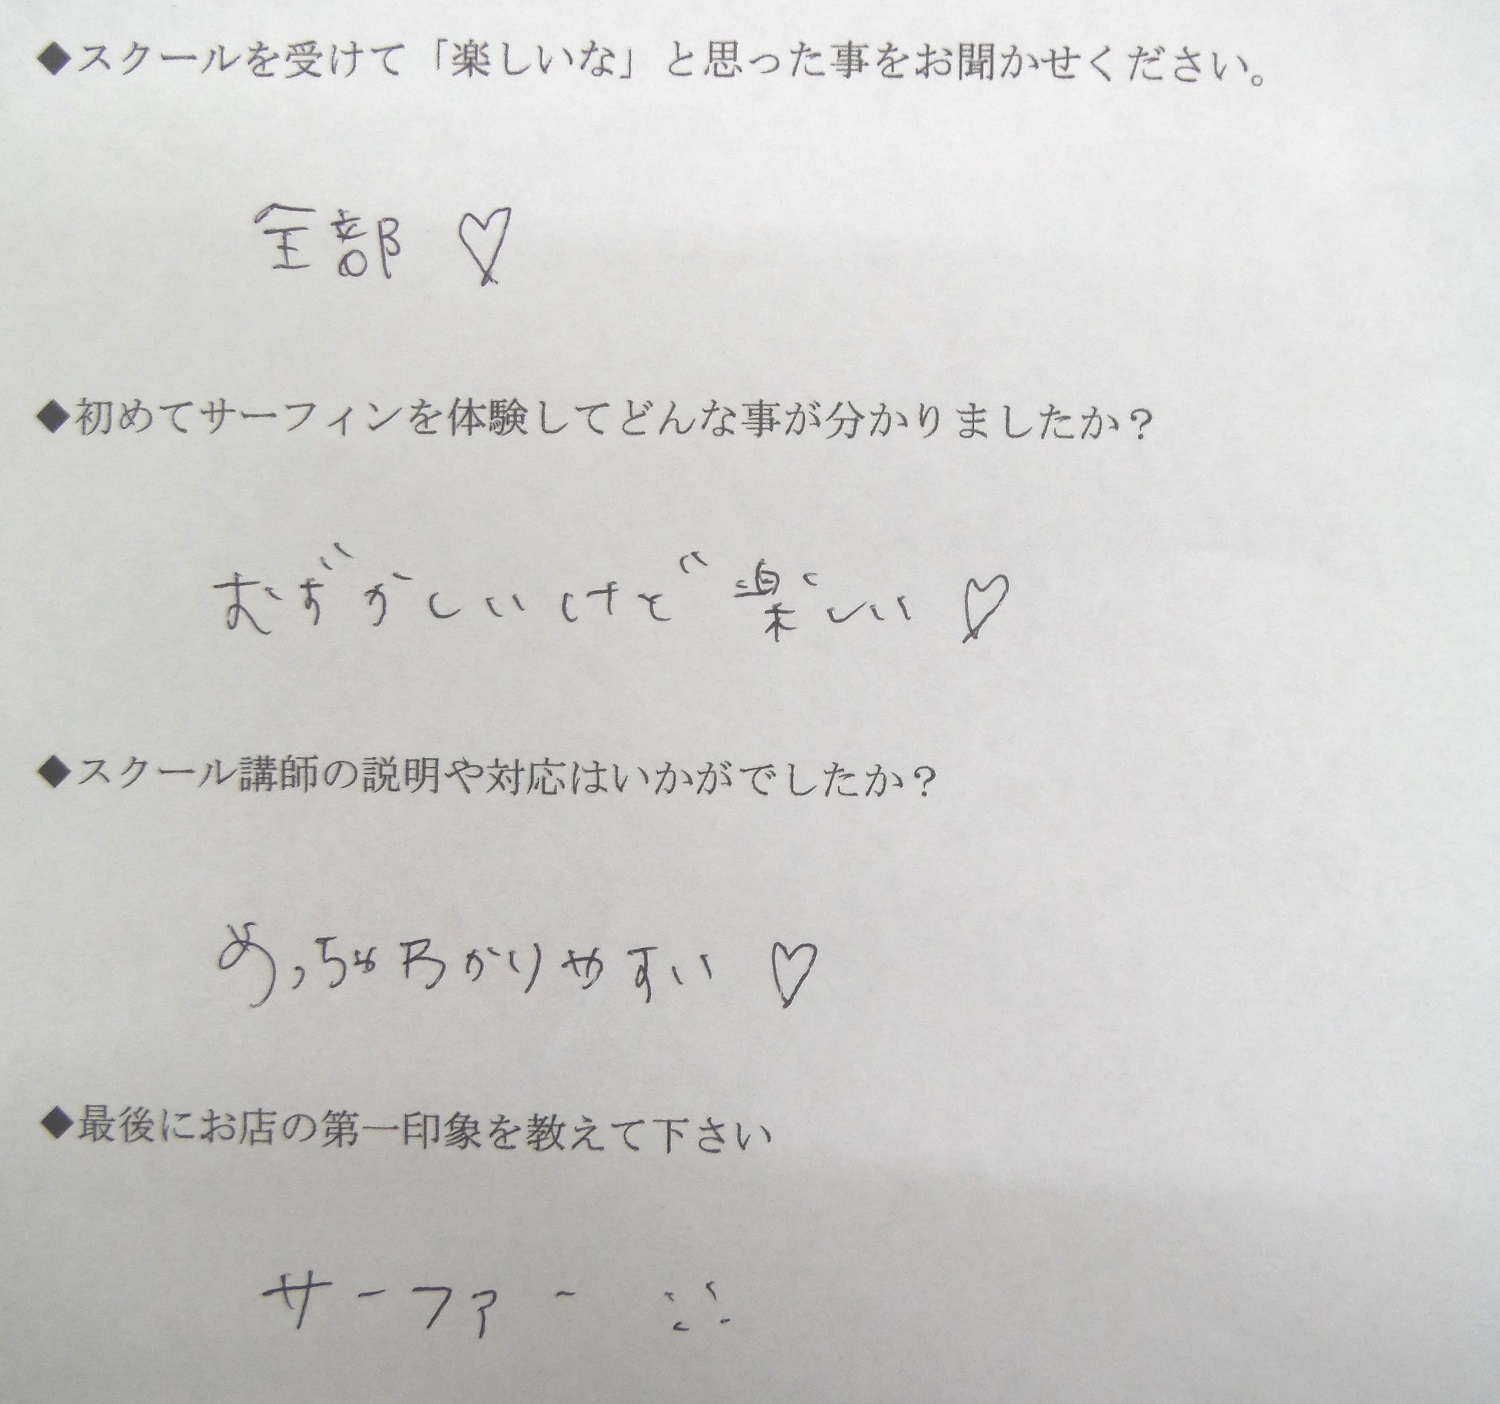 ◆スクールを受けて「楽しいな」と思った事をお聞かせください。
全部 ♡
◆初めてサーフィンを体験してどんな事が分かりましたか？
むずかしいけど楽しい ♡
◆スクール講師の説明や対応はいかがでしたか？
めっちゃわかりやすい ♡
◆最後にお店の第一印象を教えて下さい
サーファー